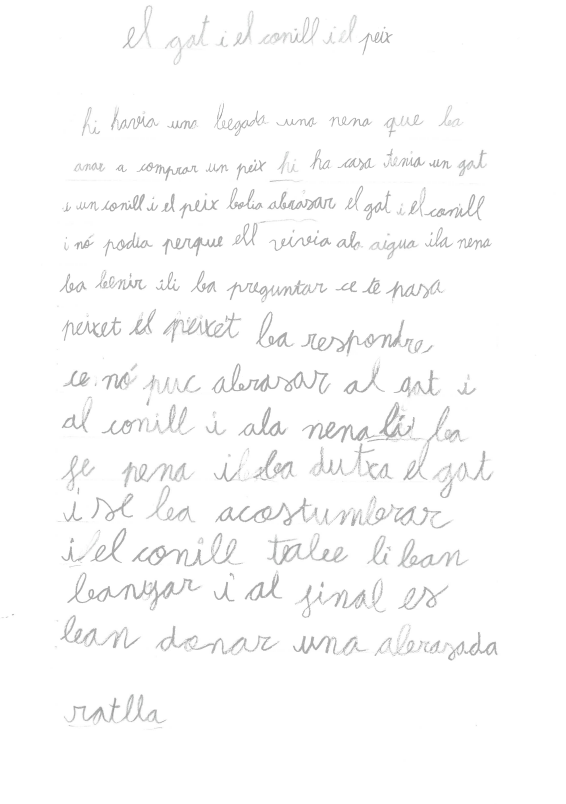 el gat i el conill i el peix
hi havia una begada una nena que ba
anar a comprar un peix hi ha casa tenia un gat
i un conill i el peix bolia abrasar el gat i el conill
i nó podia perque ell vivia ala aigua ila nena
ba benir ili ba preguntar ce te pasa
peixet el peixet ba respondre
ce nó puc abrasar al gat i
al conill i ala nena li ba
fe pena i ba dutxa el gat
i se ba acostumbrar
i el conill tabe li ban
banyar i al final es
ban donar una abrasada
ratlla